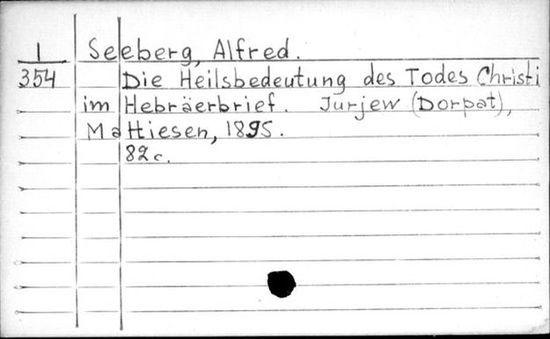 I Seeberg, Alfred.
354 Die Heilsbedeutung des Todes Christi
im Hebräerbrief. Jurjew (Dorpat),
Mattiesen, 1895.
82 c.